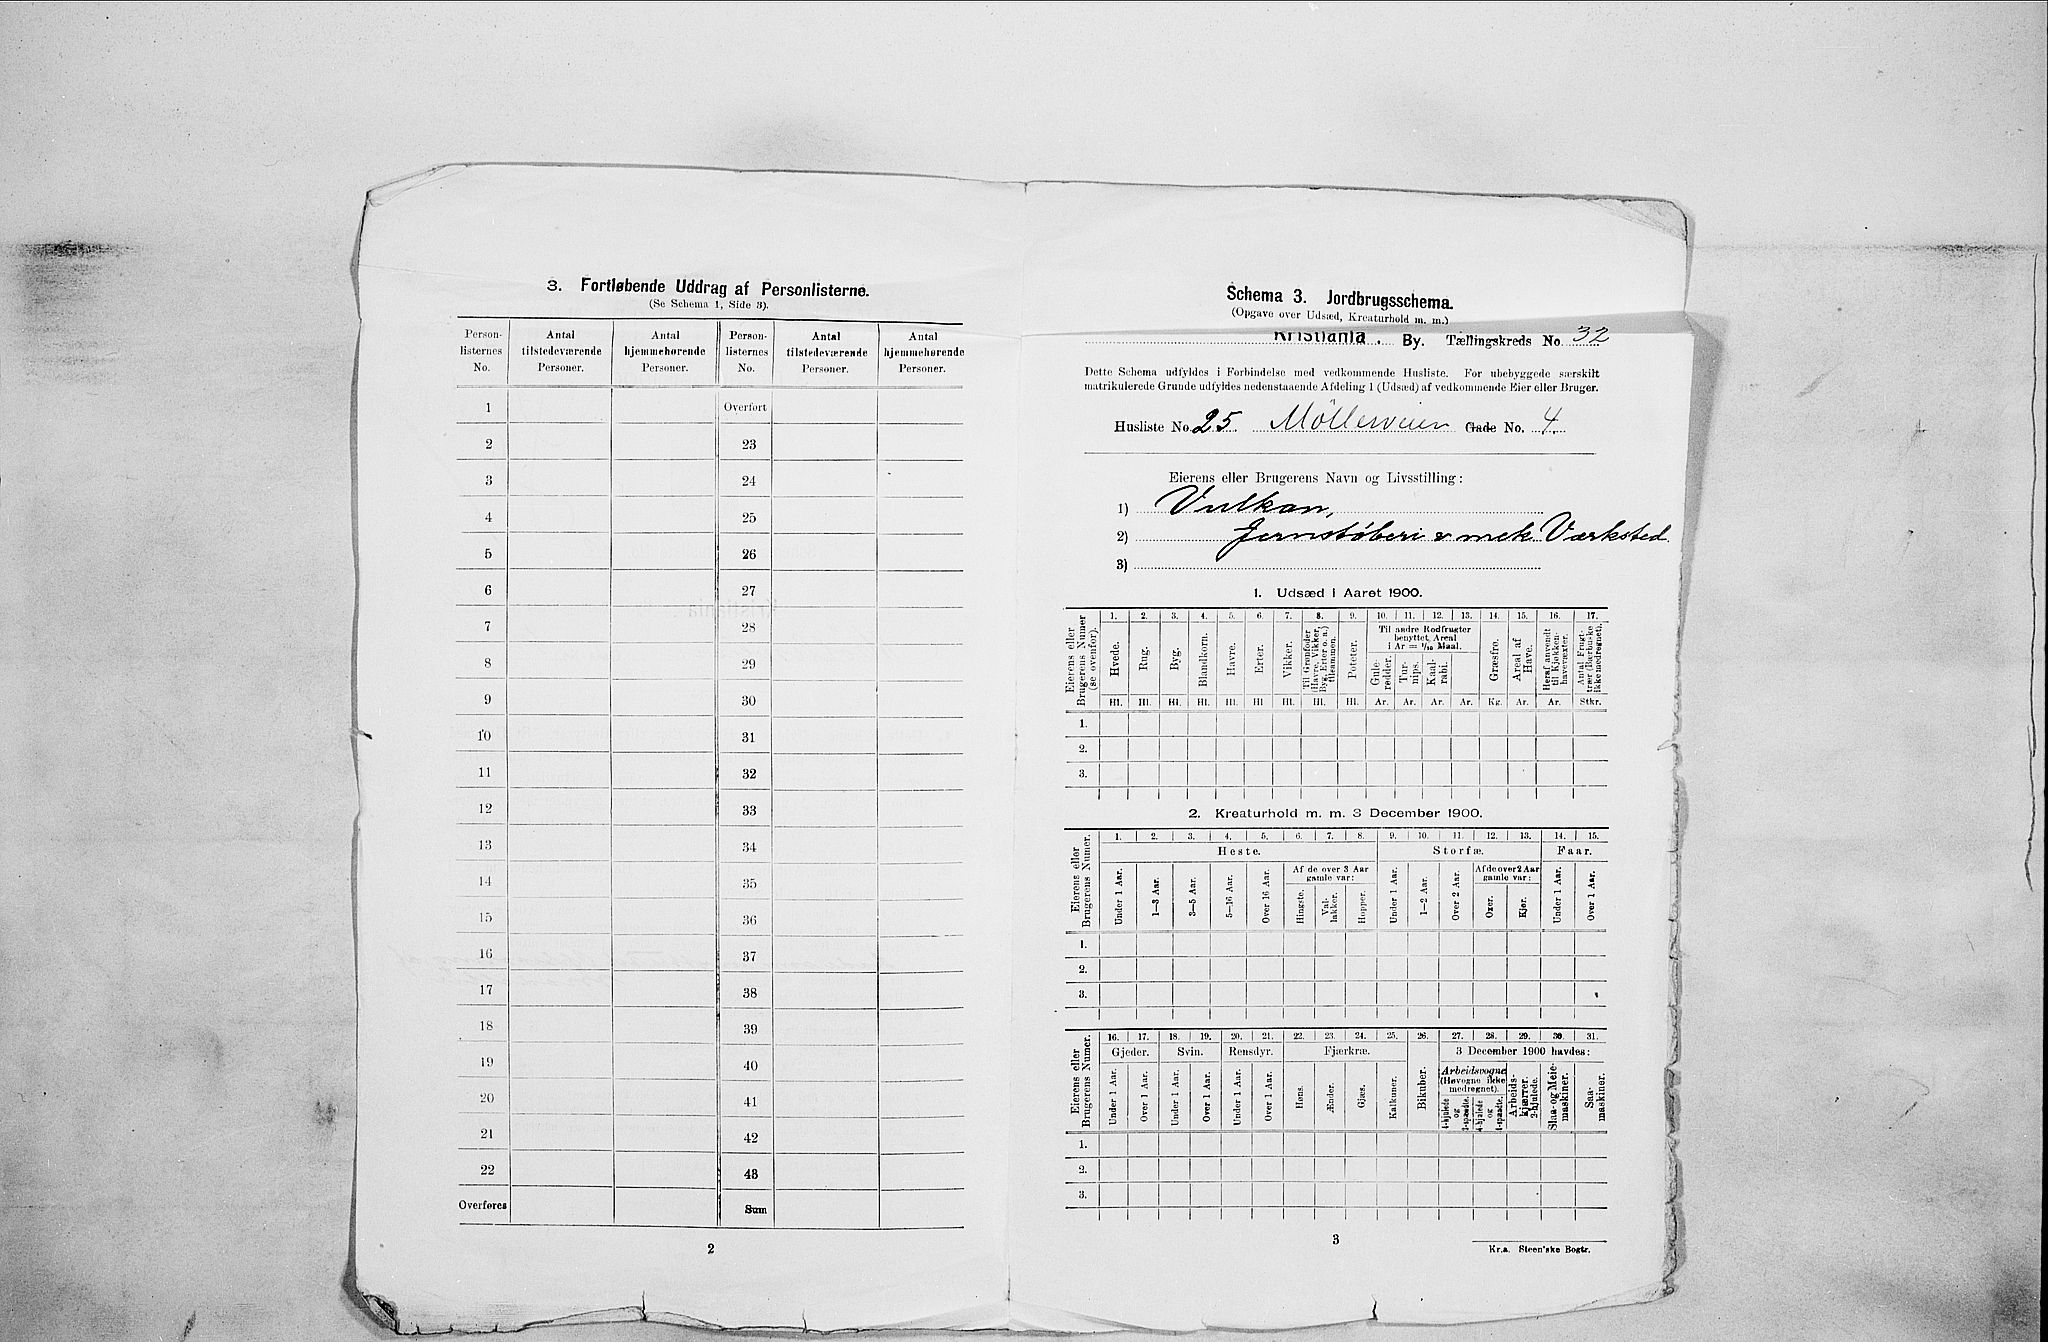 3. Fortløbende Uddrag af Personlisterne.
(Se Schema 1, Side 3).
Person-listernes No. Antal tilstedeværende Personer. Antal hjemmehørende Personer. Person-listernes No. Antal tilstedeværende Personer. Antal hjemmehørende Personer.
1 Overført
2 23
3 24
4 25
5 26
6 27
7 28
8 29
9 30
10 31
11 32
12 33
13 34
14 35
15 36
16 37
17 38
18 39
19 40
20 41
21 42
22 43
Overføres Sum
2
Schema 3. Jordbrugsschema.
(Opgave over Udsæd, Kreaturhold m. m.)
Kristiania. By. Tællingskreds No. 32
Dette Schema udfyldes i Forbindelse med vedkommende Husliste. For ubebyggede særskilt
matrikulerede Grunde udfyldes nedenstaaende Afdeling 1 (Udsæd) af vedkommende Eier eller Bruger.
Husliste No. 25. Möllerveien Gade No. 4.
Eierens eller Brugerens Navn og Livsstilling:
1) Vulkan,
2) Jernstøberi & mek Værksted
3)
1. Udsæd i Aaret 1900.
1. 2. 3. 4. 5. 6. 7. 8. 9. 10. 11. 12. 13. 14. 15. 16. 17.
Eierens eller Brugerens Numer (se ovenfor).
Hvede. Rug. Byg. Blandkorn. Havre. Erter. Vikker. Til Grønfoder (Havre, Vikker, Byg, Erter o. a.) tilsammen. Poteter.
Til andre Rodfrugter benyttet Areal i Ar = 1/10 Maal.
Gule-rødder. Tur-nips. Kaal-rabi. Græsfrø. Areal af Have. Heraf anvendt til Kjøkken-havevæxter. Antal Frugt-trær (Bærbuske ikke medregnet).
Hl. Hl. Hl. Hl. Hl. Hl Hl. Hl. Hl. Ar. Ar. Ar. Ar. Kg. Ar. Ar. Stkr.
1.
2.
3.
2. Kreaturhold m. m. 3 December 1900.
1. 2. 3. 4. 5. 6. 7. 8. 9. 10. 11. 12. 13. 14. 15.
Eierens eller Brugerens Numer.
Heste. Storfæ. Faar.
Af de over 3 Aar gamle var: Af de over 2 Aar gamle var:
Under 1 Aar. 1—3 Aar. 3—5 Aar. 5—16 Aar. Over 16 Aar. Hingste. Val-lakker. Hopper. Under 1 Aar. 1—2 Aar. Over 2 Aar. Oxer. Kjør. Under 1 Aar. Over 1 Aar.
1.
2.
3.
16. 17. 18. 19. 20. 21. 22. 23. 24. 25. 26. 27. 28. 29. 30. 31.
Eierens eller Brugerens Numer.
Gjeder. Svin. Rensdyr. Fjærkræ. Bikuber. 3 December 1900 havdes:
Arbeidsvogne (Høvogne ikke medregnet).
Under 1 Aar. Over 1 Aar. Under 1 Aar. Over 1 Aar. Under 1 Aar. Over 1 Aar. Høns. Ænder. Gjæs. Kalkuner. 4-hjulede og 2-spændte. 4-hjulede og 1-spændte. Arbeids-kjærrer, 2-hjulede. Slaa- og Meie-maskiner. Saa-maskiner.
1.
2.
3.
3
Kr.a. Steen'ske Bogtr.